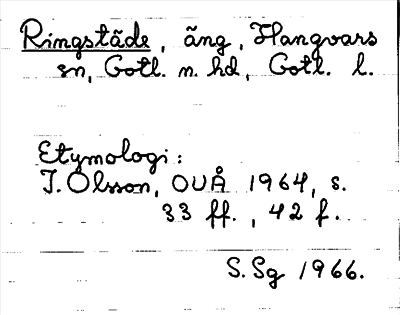 Ringstäde, äng, Hangvars
sn, Gotl. n. hd, Gotl. l.
Etymologi:
I. Olsson, OUÅ 1964, s.
33 ff., 42 f.
S.Sg 1966.